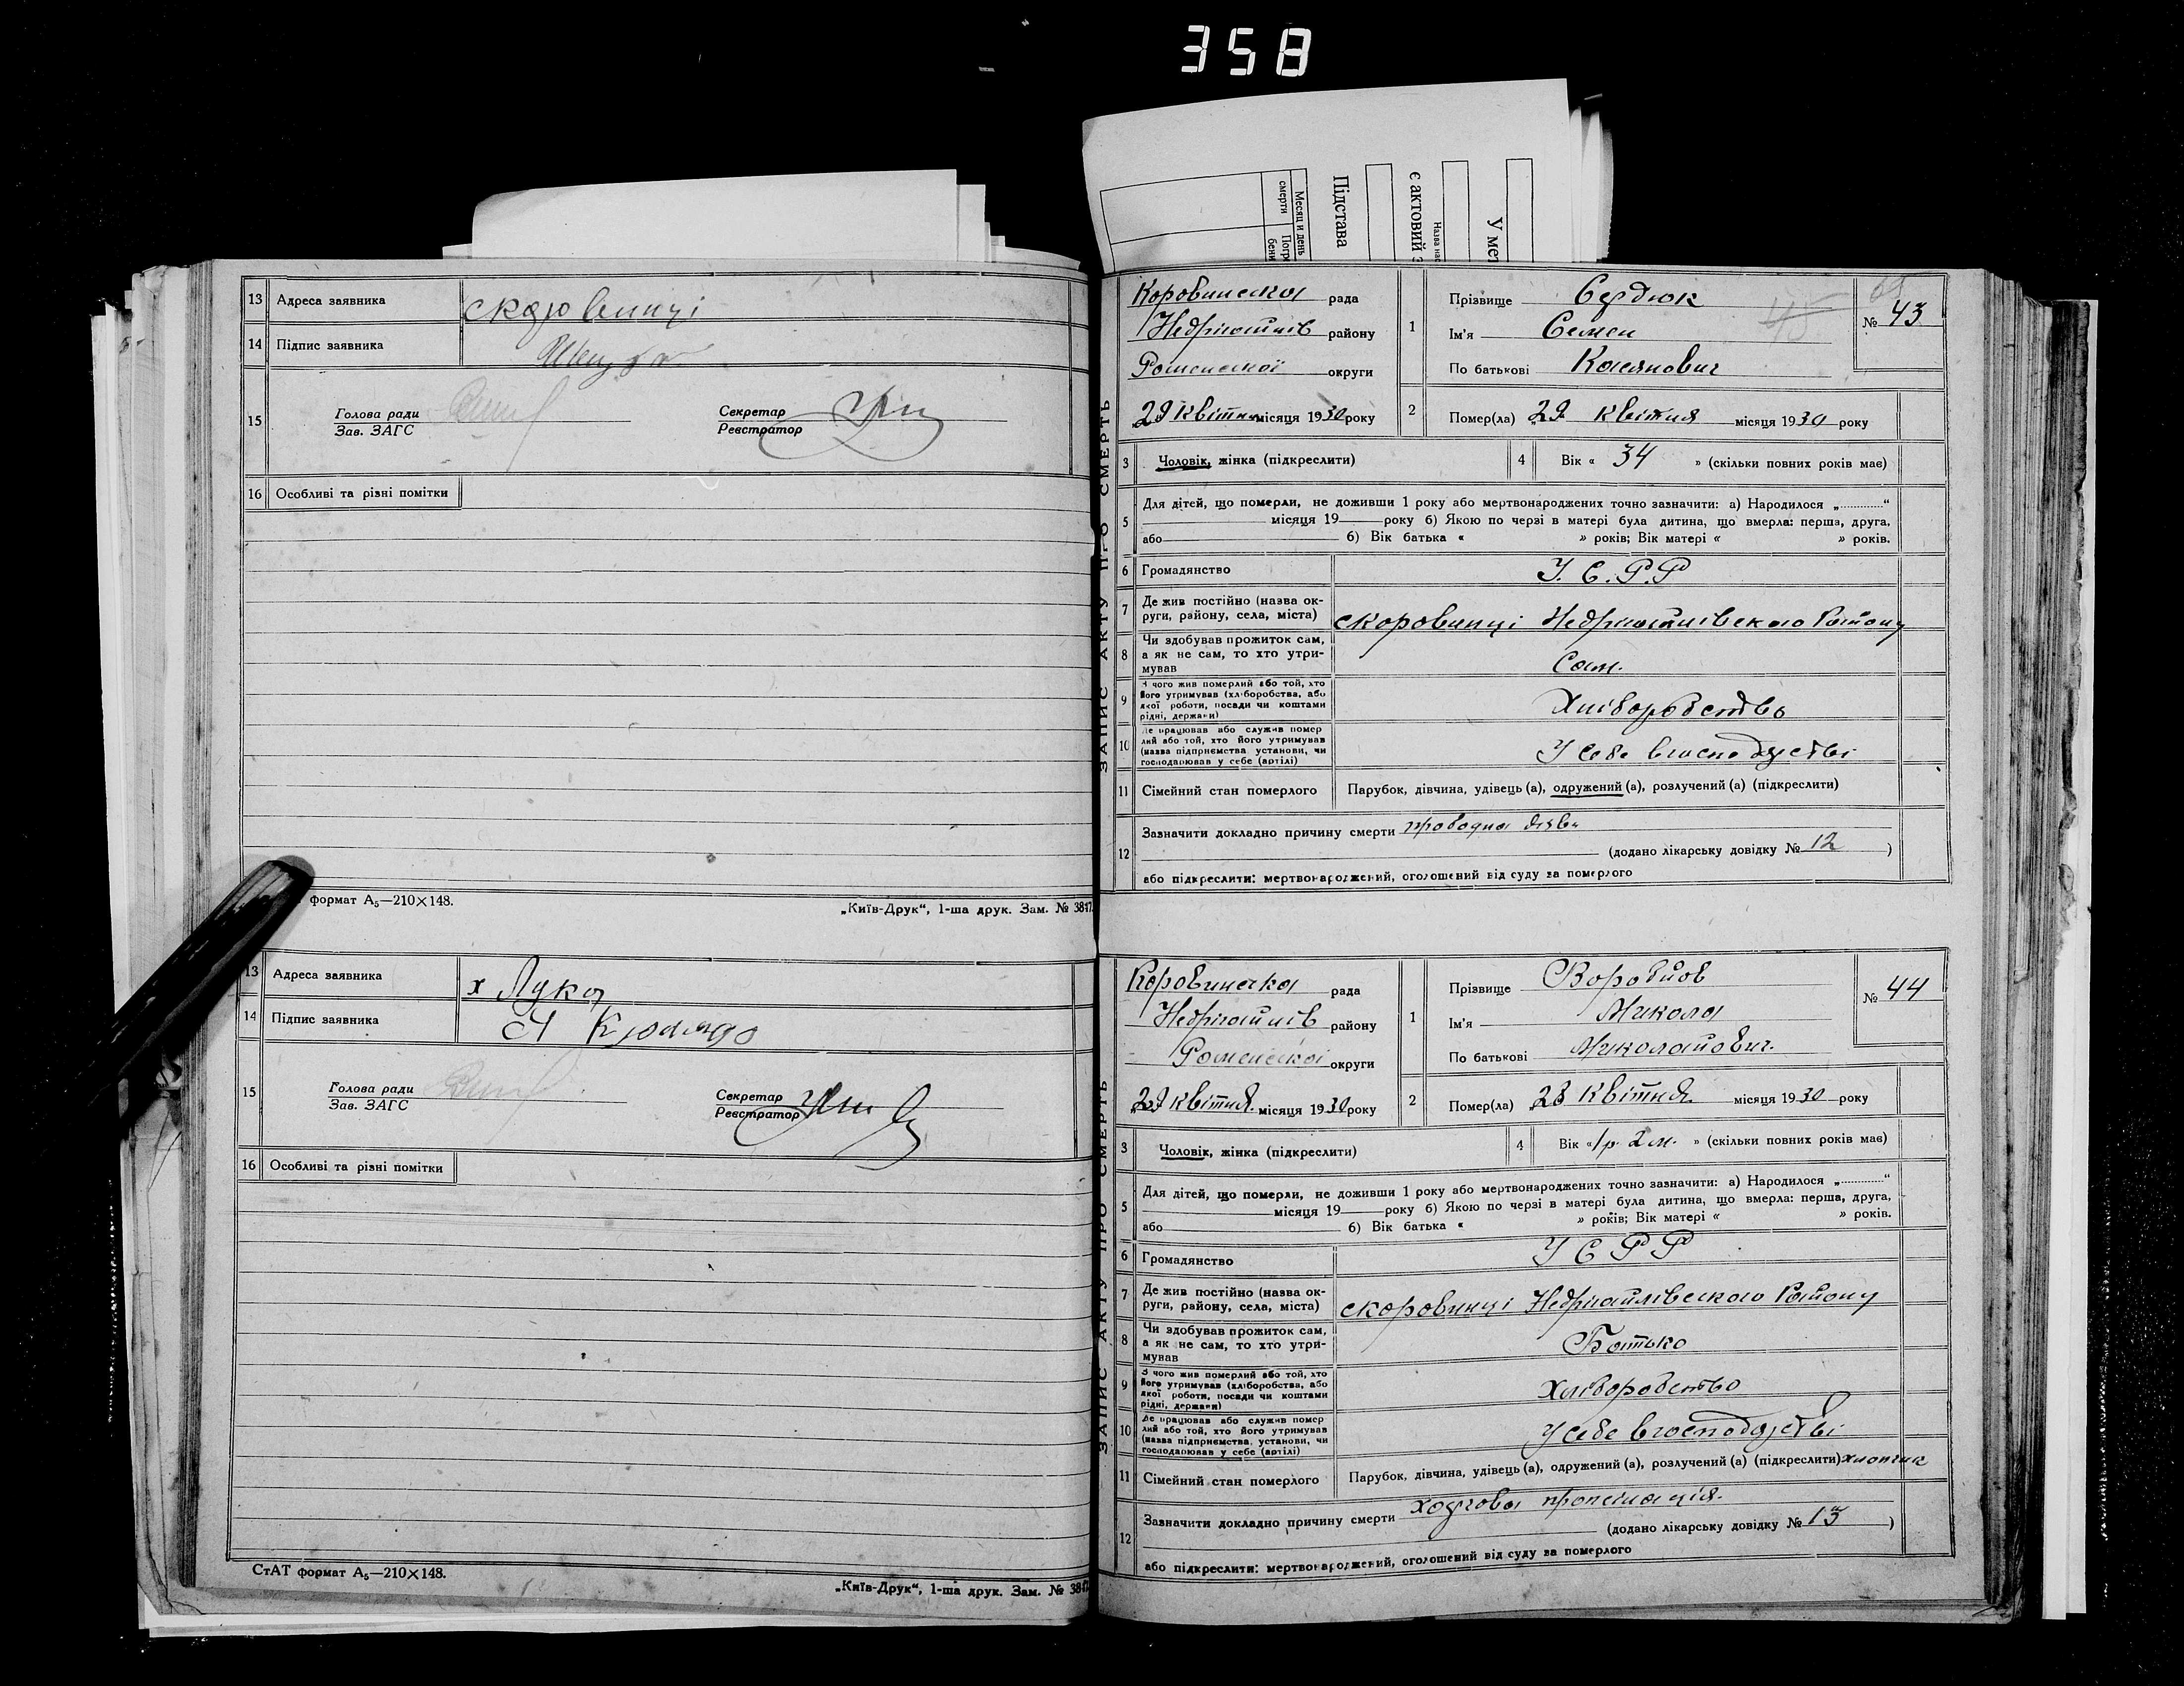 358
Месяц и день смерти
Підстава
є актовий з
У мет
13 Адреса заявника
14 Підпис заявника
15 Голова ради
Зав. ЗАГС
Секретар
Реєстратор
16 Особливі та різні помітки
формат А₅—210×148.
„Київ-Друк“, 1-ша друк. Зам. № 3817
13 Адреса заявника х Лука
14 Підпис заявника
15 Голова ради
Зав. ЗАГС
Секретар
Реєстратор
16 Особливі та різні помітки
СтАТ формат А₅—210×148.
„Київ-Друк“, 1-ша друк. Зам. №
ЗАПИС АКТУ ПРО СМЕРТЬ
Коровинська рада
Недригайлів району
Роменської округи
29 квітня місяця 1930 року
1 Прізвище Сердюк
Ім'я Семен
По батькові Касянович
№ 43
2 Помер(ла) 29 квітня місяця 1930 року
3 Чоловік, жінка (підкреслити)
4 Вік « 34 » (скільки повних років має)
5 Для дітей, що померли, не доживши 1 року або мертвонароджених точно зазначити: а) Народилося „............“
місяця 19 року б) Якою по черзі в матері була дитина, що вмерла: перша, друга,
або 6) Вік батька « » років; Вік матері « » років.
6 Громадянство У. С. Р. Р
7 Де жив постійно (назва ок-
руги, району, села, міста) с коровинці Недригайлівського Району
8 Чи здобував прожиток сам,
а як не сам, то хто утри-
мував Сам.
9 З чого жив померлий або той, хто
його утримував (хліборобства, або
якої роботи, посади чи коштами
рідні, держави) Хліборобство
10 Де працював або служив помер
лий або той, хто його утримував
(назва підприємства, установи, чи
господарював у себе (артілі) У себе в господарстві
11 Сімейний стан померлого Парубок, дівчина, удівець (а), одружений (а), розлучений (а) (підкреслити)
12 Зазначити докладно причину смерти
(додано лікарську довідку № 12 )
або підкреслити: мертвонароджений, оголошений від суду за померлого
ЗАПИС АКТУ ПРО СМЕРТЬ
Коровинська рада
Недригайлів району
Роменської округи
29 квітня місяця 1930 року
1 Прізвище Воробйов
Ім'я Микола
По батькові Миколайович.
№ 44
2 Помер(ла) 28 квітня місяця 1930 року
3 Чоловік, жінка (підкреслити)
4 Вік « 1 р. 2 м. » (скільки повних років має)
5 Для дітей, що померли, не доживши 1 року або мертвонароджених точно зазначити: а) Народилося „............“
місяця 19 року б) Якою по черзі в матері була дитина, що вмерла: перша, друга,
або 6) Вік батька « » років; Вік матері « » років.
6 Громадянство У С Р Р
7 Де жив постійно (назва ок-
руги, району, села, міста) с коровинці Недригайлівського Району
8 Чи здобував прожиток сам,
а як не сам, то хто утри-
мував Батько
9 З чого жив померлий або той, хто
його утримував (хліборобства, або
якої роботи, посади чи коштами
рідні, держави) Хліборобство
10 Де працював або служив помер
лий або той, хто його утримував
(назва підприємства, установи, чи
господарював у себе (артілі) У себе в господарстві
11 Сімейний стан померлого Парубок, дівчина, удівець (а), одружений (а), розлучений (а) (підкреслити) хлопчик
12 Зазначити докладно причину смерти
(додано лікарську довідку № 13 )
або підкреслити: мертвонароджений, оголошений від суду за померлого